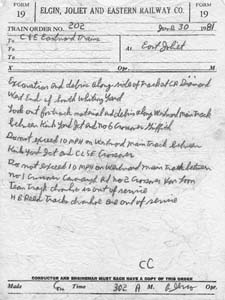 FORM 19
ELGIN, JOLIET AND EASTERN RAILWAY CO.
FORM 19
TRAIN ORDER NO. 202
June 30 1981
To C&E Eastward Trains
At East Joliet
X Opr. M.
Excavation and debris along side of track at CR Diamond
West End of Whiting Yard
Look out for track material and debris along Westward main track
between Kirk Yard Jct and No 6 Crossover Griffith
Do not exceed 10 MPH on Westward main track between
Kirk Yard Jct and Crossover
Do not exceed 10 MPH on Westward main track between
No 1 Crossover and No 2 Crossover Van Loon
Team track is out of service
H B Road track is out of service
CC
CONDUCTOR AND ENGINEMAN MUST EACH HAVE A COPY OF THIS ORDER
Made Com Time 302 A M. Opr.